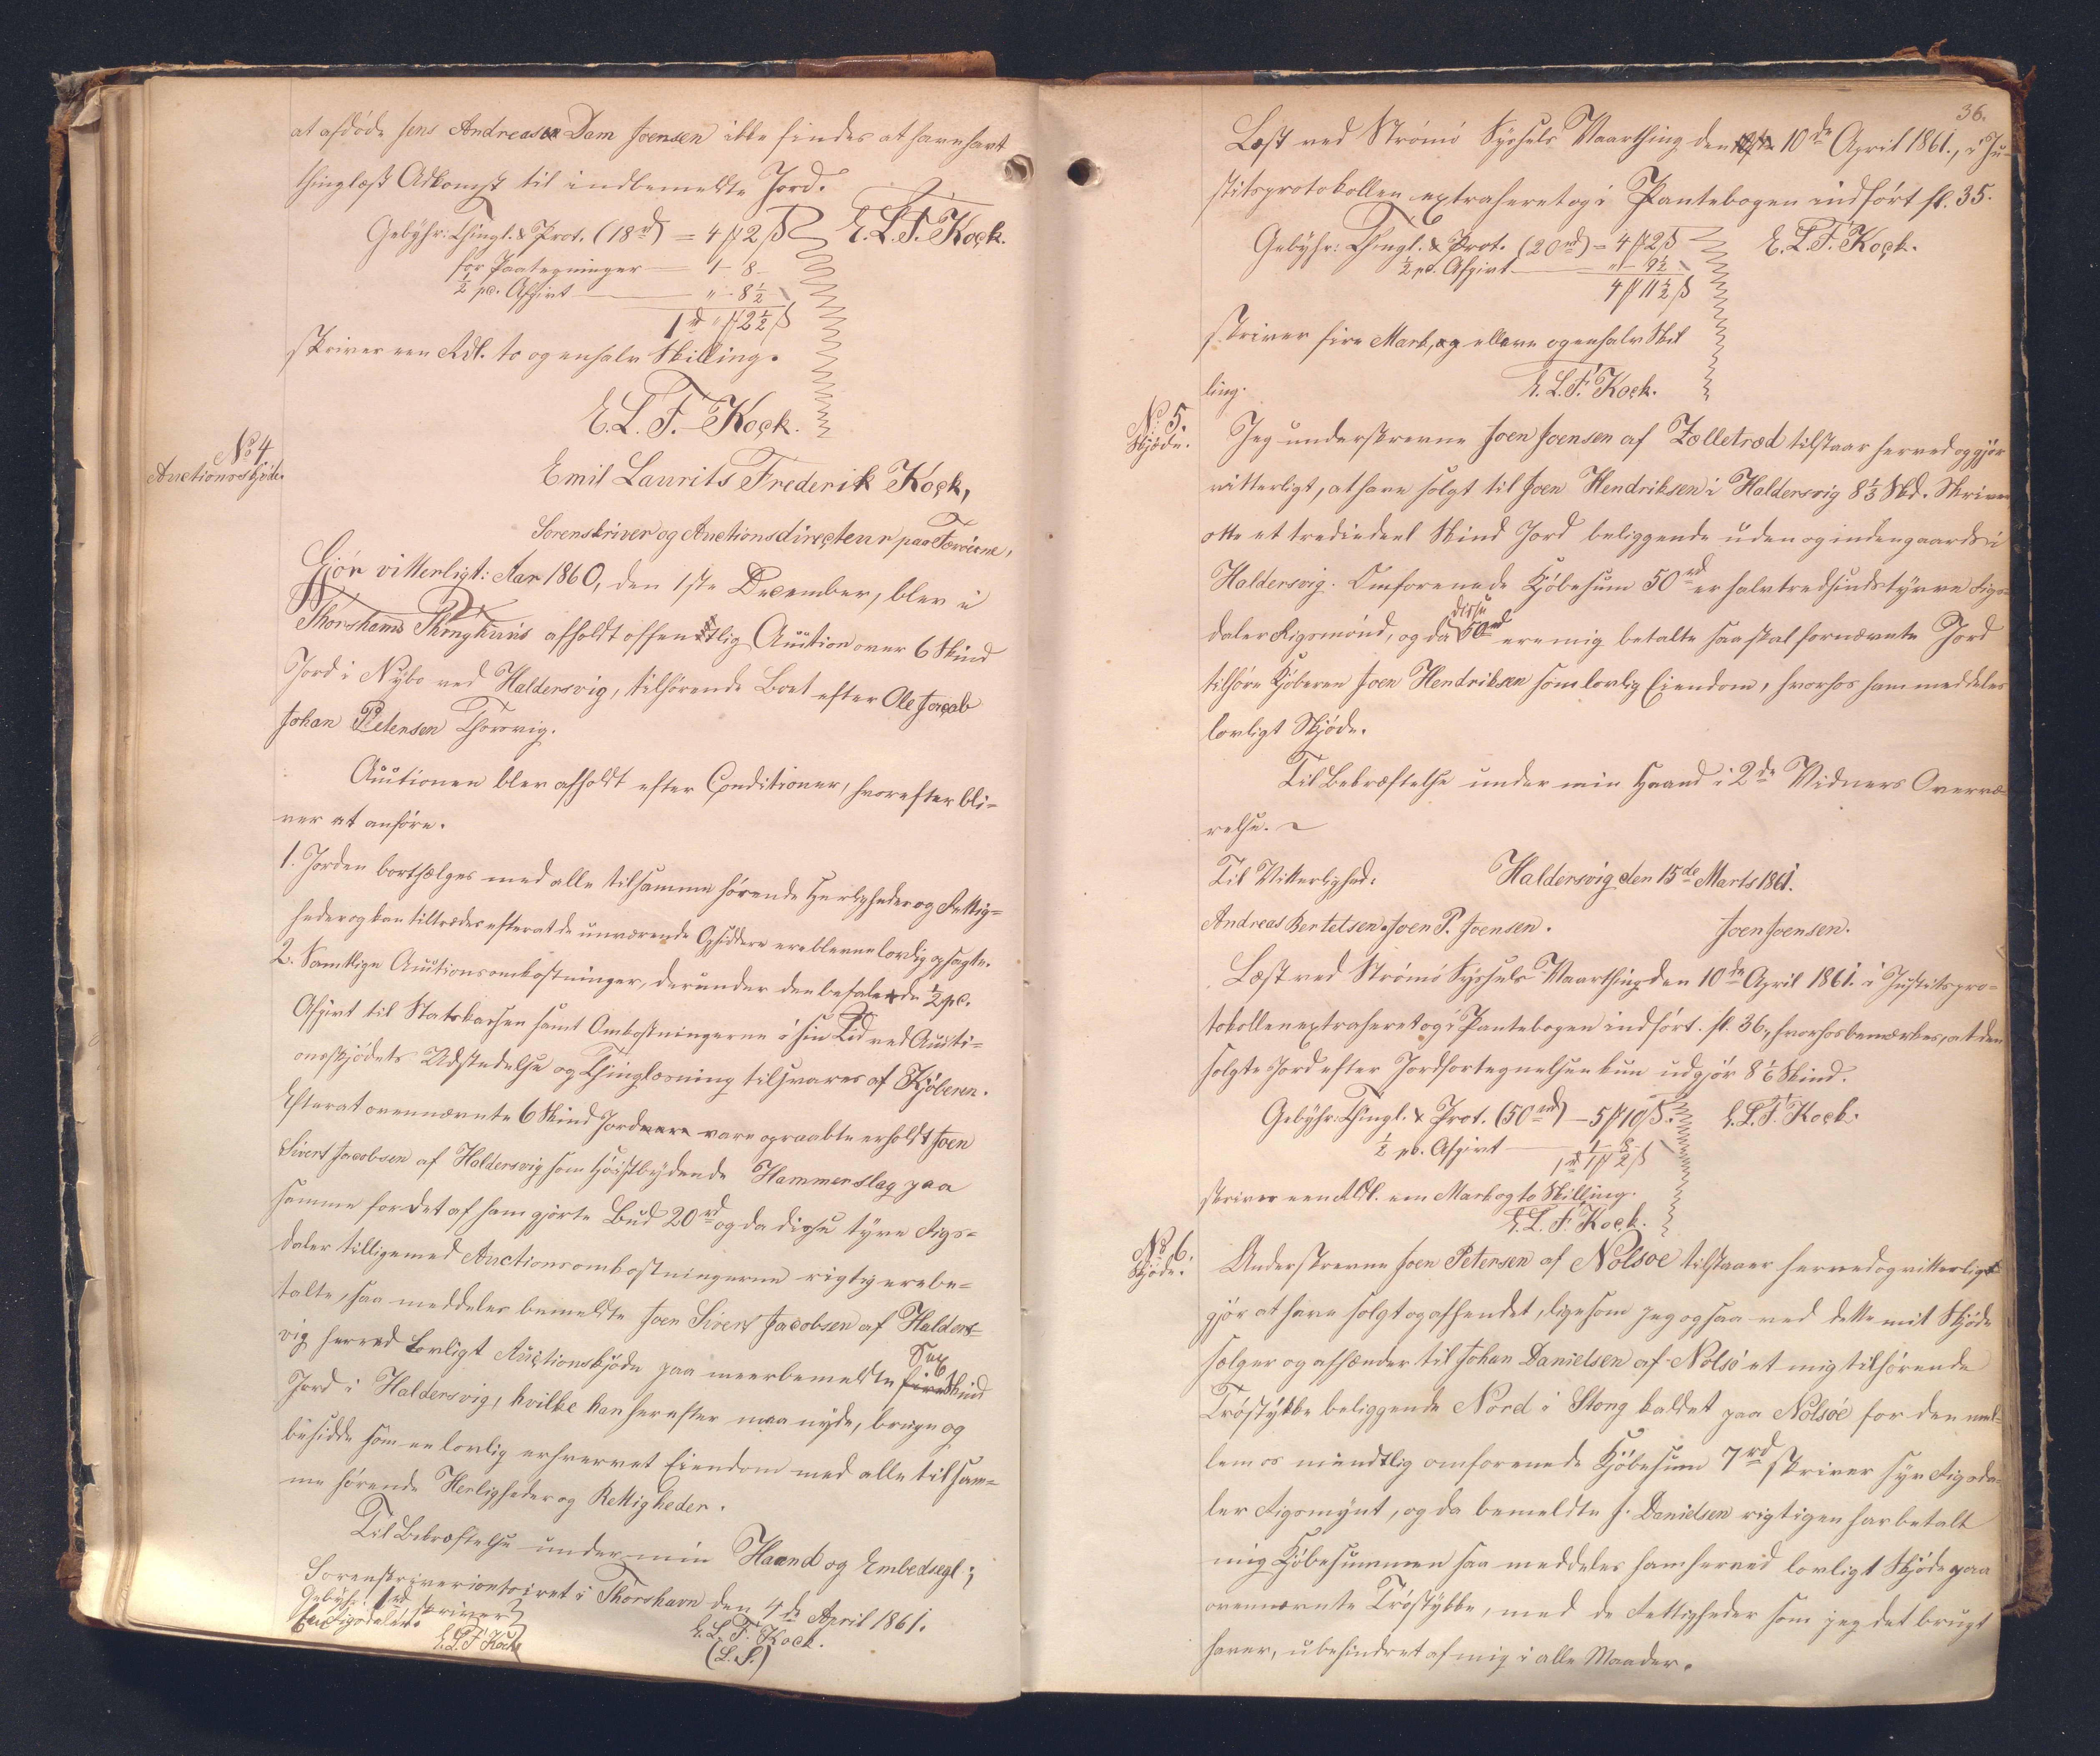 at afdöde Jens Andreas Dam Joensen ikke findes at have havt
thinglæst Adkomst til indbemeldte Jord.
Gebÿhr: Thingl. & Prot. (18 rd) = 4 # 2 ß E.L.F. Kock.
for Paategninger — 1 - 8 -
½ pc. Afgivt — " - 8½
1 rd " # 2½ ß
skriver een Rdl. to og en halv Skilling.
E.L.F. Kock.
No 4
Auctionsskjöde.
Emil Laurits Frederik Kock,
Sorenskriver og Auctionsdirecteur paa Færöerne,
Gjör vitterligt: Aar 1860, den 1ste December, blev i
Thorshavns Thinghuus afholdt offentlig Auction over 6 Skind
Jord i Nÿbo ved Haldersvig, tilhörende Boet efter Ole Jacob
Johan Petersen Thorsvig.
Auctionen blev afholdt efter Conditioner, hvorefter bli-
ver at anföre.
1. Jorden bortsælges med alle tilsamme hörende Herligheder og Rettig-
heder og kan tiltrædes efterat de nuværende Opsiddere ere blevne lovlig opsagte.
2. Samtlige Auctionsomkostninger, derunder den befalede ½ pc.
Afgivt til Statskassen samt Omkostningerne i sin Tid ved Aucti-
onsskjödets Udstedelse og Thinglæsning tilsvares af Kjöberen.
Efterat ovennævnte 6 Skind Jord vare opraabte erholdt Joen
Sivert Jacobsen af Haldersvig som Höistbÿdende Hammerslag paa
samme for det af ham gjorte Bud 20 rd og da disse tÿve Rigs-
daler tilligemed Auctionsomkostningerne rigtig ere be-
talte, saa meddeles bemeldte Joen Sivert Jacobsen af Halders-
vig herved Lovligt Auctionskjöde paa meerbemeldte fire Sex Skind
Jord i Haldersvig, hvilke han herefter maa nÿde, bruge og
besidde som en lovlig erhvervet Eiendom med alle tilsam-
me hörende Herligheder og Rettigheder.
Til Bekræftelse under min Haand og Embedsegl;
Sorenskrivercontoiret i Thorshavn den 4de April 1861.
Gebÿhr 1 rd skriver
En Rigsdaler.
E.L.F. Kock
E.L.F. Kock.
(L.S.)
36.
Læst ved Strömö Sÿssels Vaarthing den 10de April 1861., i Ju-
stitsprotokollen extraheret og i Pantebogen indfört fl. 35.
Gebÿhr: Thingl. & Prot. (20 rd) = 4 # 2 ß E.L.F. Kock.
½ pc. Afgivt — " - 9½
4 # 11½ ß
skriver fire Mark, og elleve og en halv Skil
ling.
E.L.F. Kock.
No 5.
Skjöde.
Jeg underskrevne Joen Joensen af Zelletræd tilstaar herved og gjör
vitterligt, at have solgt til Joen Hendriksen i Haldersvig 8⅓ Skd. Skriver
otte et trediedeel Skind Jord beliggende uden og inden gaards i
Haldersvig. Omforenede Kjöbesum 50 rd er halvtredsindstÿve Rigs-
daler Rigsmönd, og da disse 50 rd ere mig betalte saa skal fornævnte Jord
tilhöre Kjöberen Joen Hendriksen som lovlig Eiendom, hvorhos ham meddeles
lovligt Skjöde.
Til Bekræftelse under min Haand i 2de Vidners Overvæ-
relse.
Til Vitterlighed: Haldersvig den 15de Marts 1861.
Andreas Bertelsen. Joen P. Joensen. Joen Joensen.
Læst ved Strömö Sÿssels Vaarthing den 10de April 1861. i Justitspro-
tokollen extraheret og i Pantebogen indfört. fl. 36., hvorhos bemærkes, at den
solgte Jord efter Jordfortegnelsen kun udgjör 8⅙ Skind.
Gebÿhr: Thingl. & Prot. (50 rd) — 5 # 10 ß. E.L.F. Kock.
½ pc. Afgivt — 1 - 8 -
1 rd 1 # 2 ß
skriver een Rdl. een Mark og to Skilling.
E.L.F. Kock.
No 6.
Skjöde.
Underskrevne Joen Petersen af Nolsoe tilstaaer herved og vitterligt
gjör at have solgt og afhendet, ligesom jeg ogsaa ved dette mit Skjöde
sælger og afhænder til Johan Danielsen af Nolsö et mig tilhörende
Tröstÿkke beliggende Nord i Stong kaldet paa Nolsöe for den mel-
lem os mündtlig omforenede Kjöbesum 7 rd skriver sÿv Rigsda-
ler Rigsmÿnt, og da bemeldte J. Danielsen rigtigen har betalt
mig Kjöbesummen saa meddeles ham herved lovligt Skjöde paa
ovennævnte Tröstÿkke, med de Rettigheder som jeg det brugt
haver, ubehindret af mig i alle Maader.